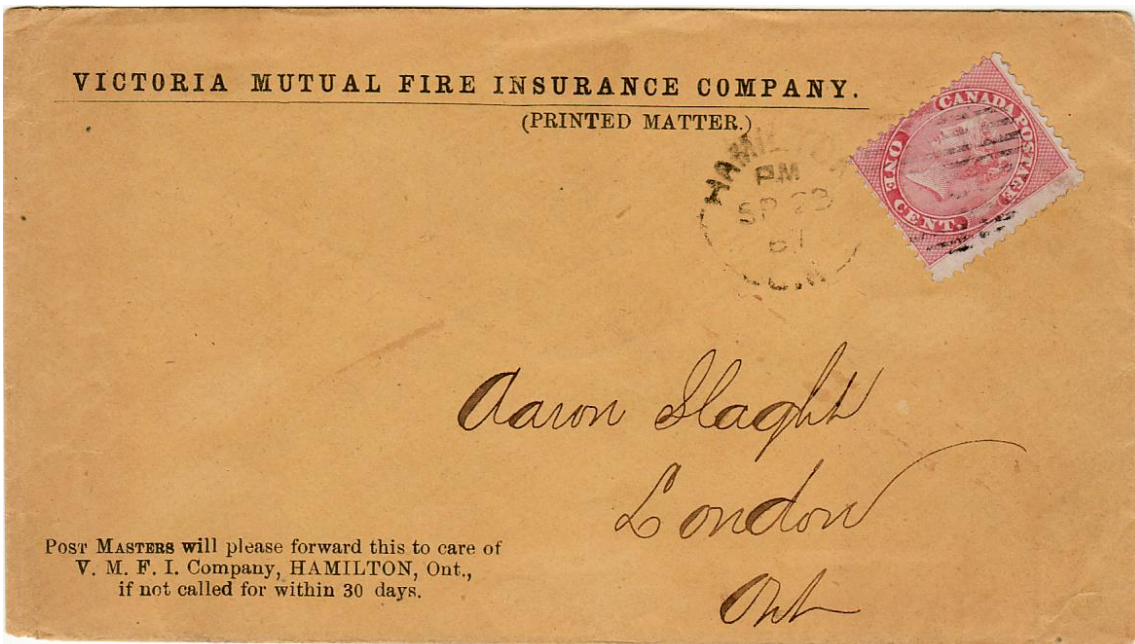 VICTORIA MUTUAL FIRE INSURANCE COMPANY.
(PRINTED MATTER.)
CANADA POSTAGE
ONE CENT.
HAMILTON
PM
SP 23
67
C.W
Aaron Slaght
London
Ont
POST MASTERS will please forward this to care of
V. M. F. I. Company, HAMILTON, Ont.,
if not called for within 30 days.